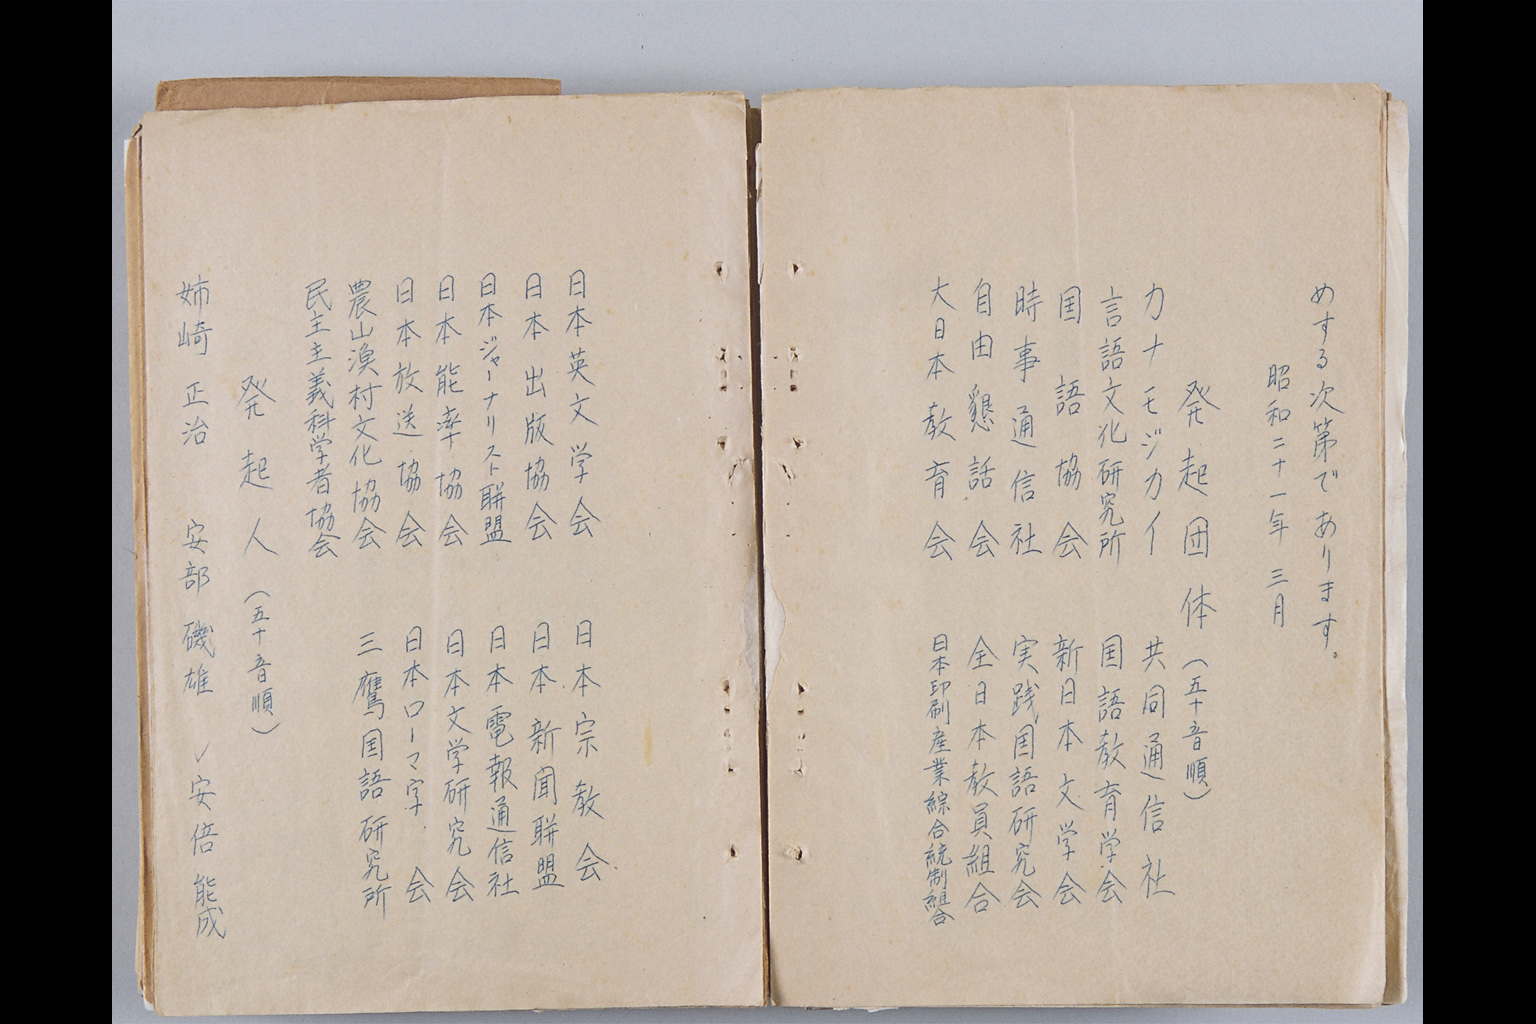 めする次第であります。
昭和二十一年 三月
発起団体(五十音順)
カナモジカイ 共同通信社
言語文化研究所 国語教育学会
国語協会 新日本文学会
時事通信社 実践国語研究会
自由懇話会 全日本教員組合
大日本教育会 日本印刷産業綜合統制組合
日本英文学会 日本宗教会
日本出版協会 日本新聞聯盟
日本ジャーナリスト聯盟 日本電報通信社
日本能率協会 日本文学研究会
日本放送協会 日本ローマ字会
農山漁村文化協会 三鷹国語研究所
民主主義科学者協会
発起人(五十音順)
姉崎正治 安部磯雄 ✓安倍能成